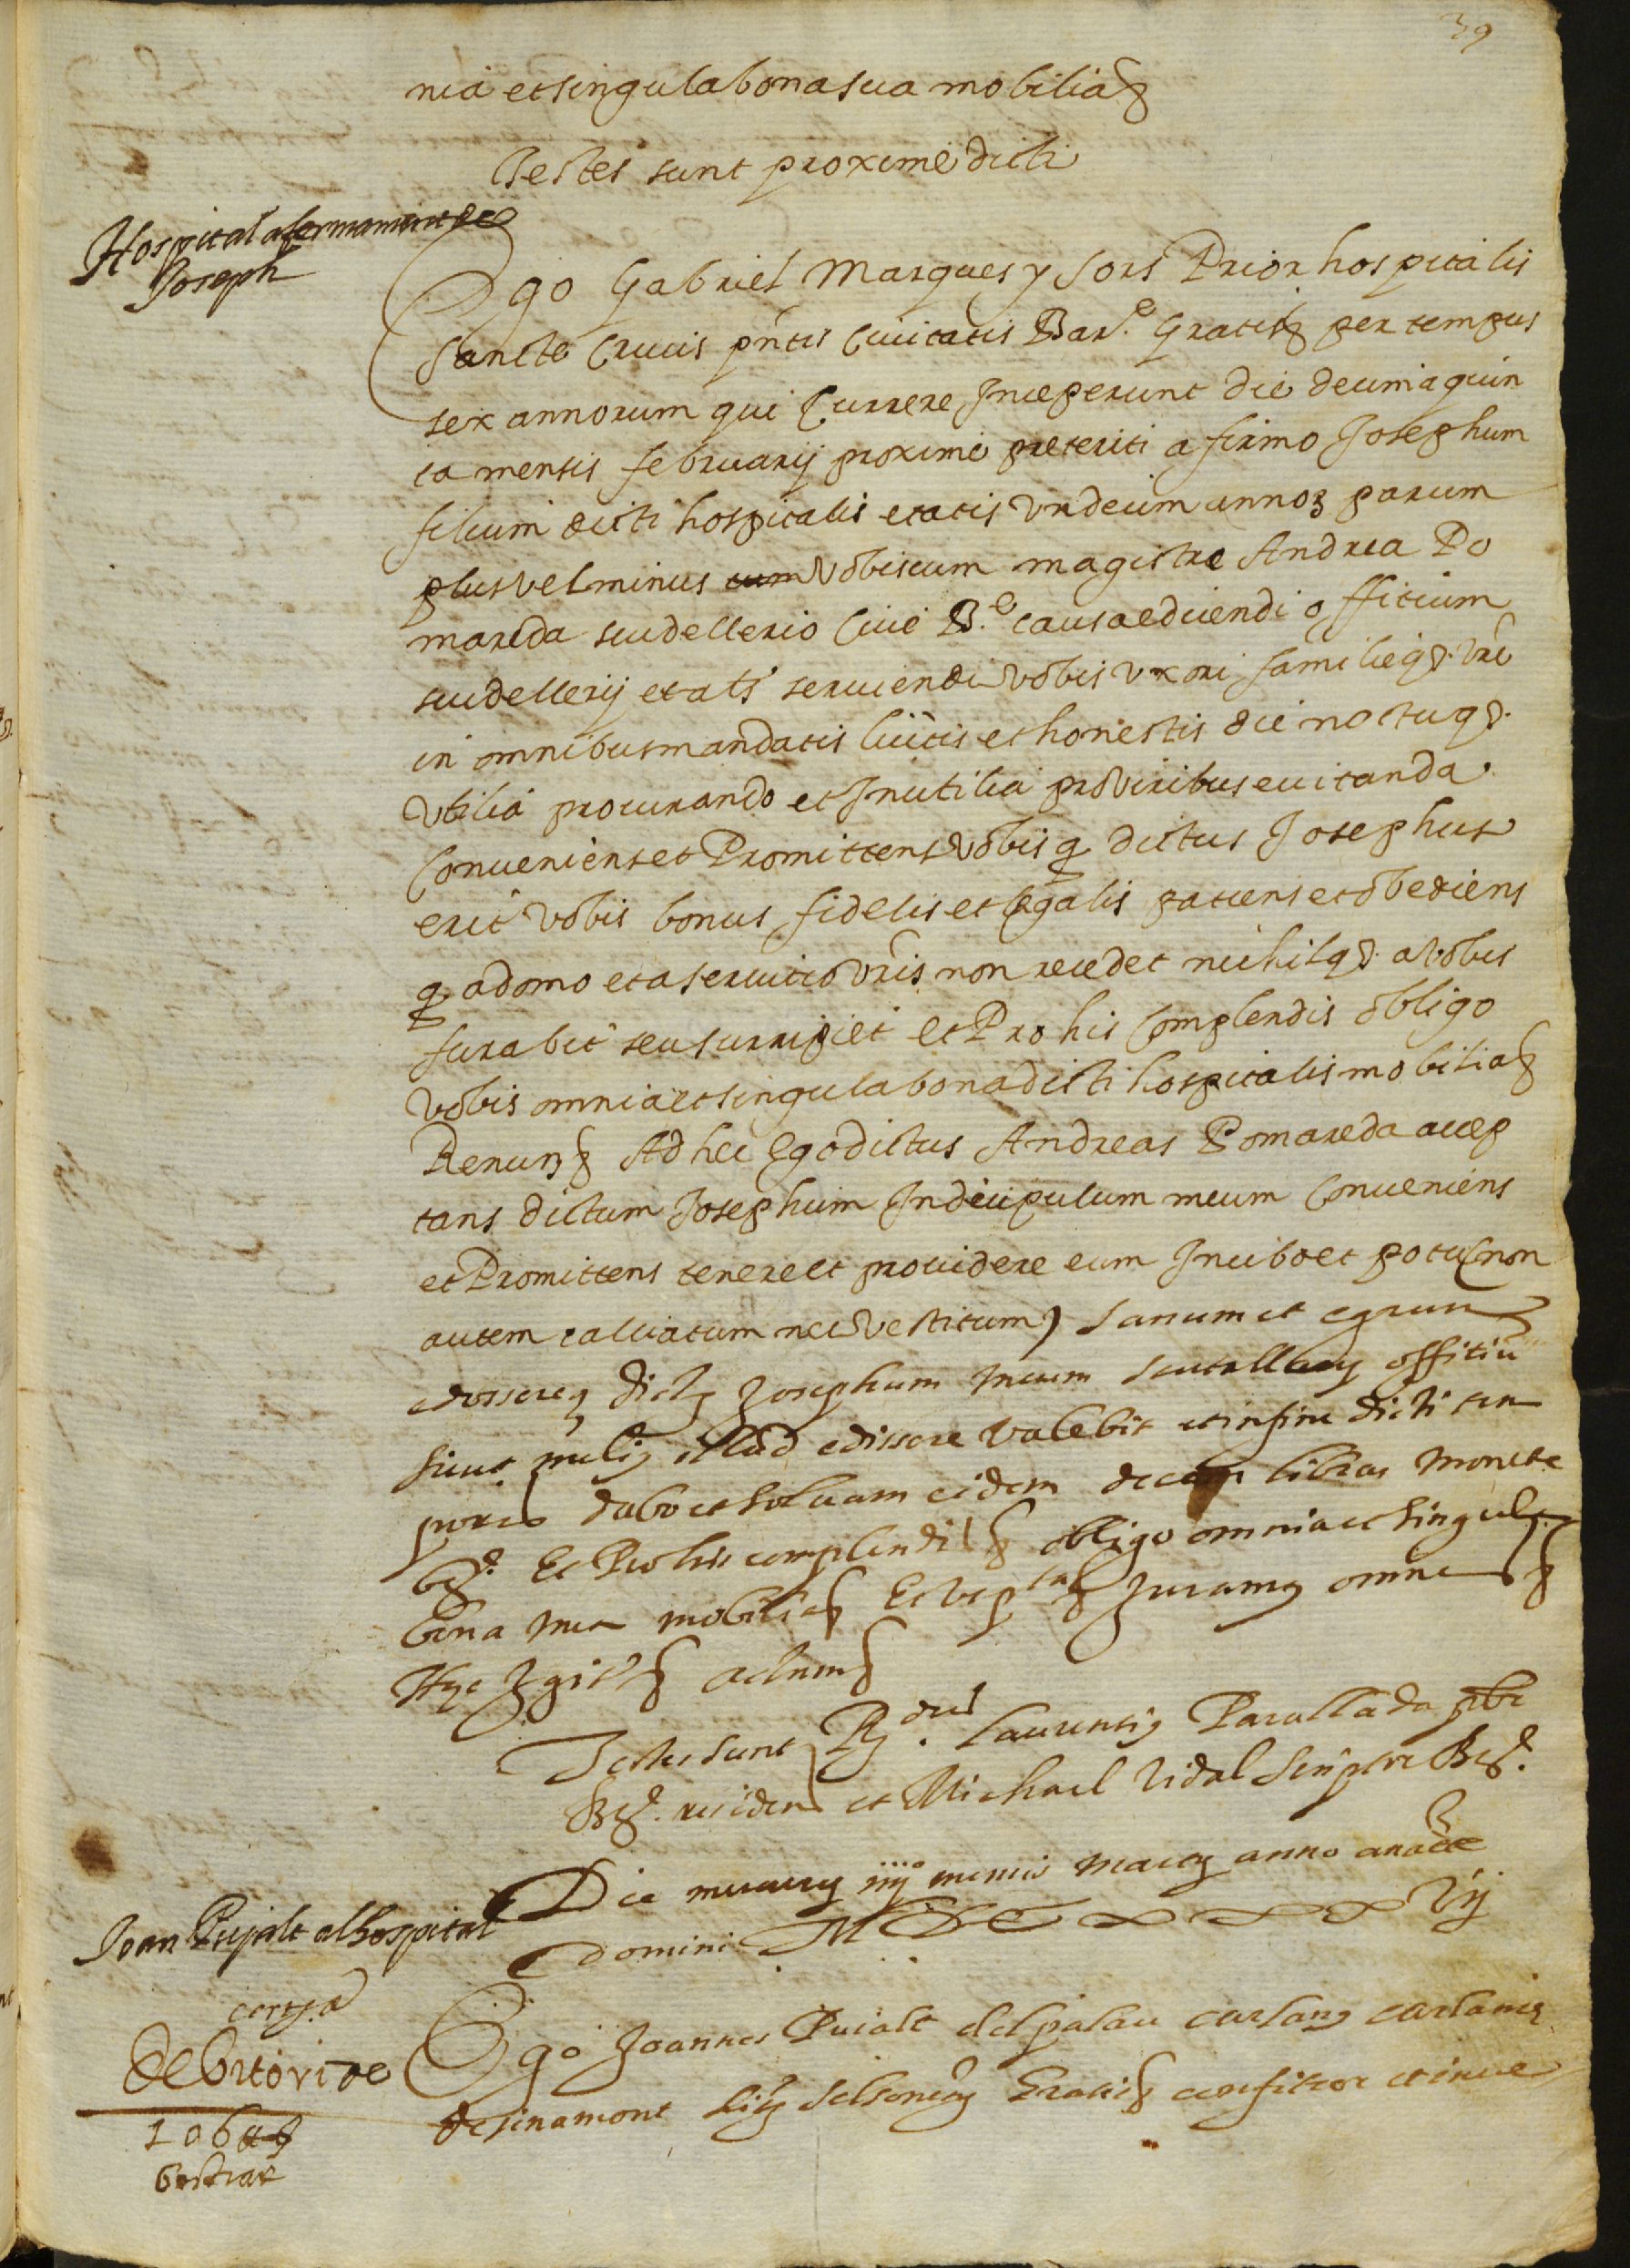 39
nia et singula bona sua mobilia &
Testes sunt proxime dicti
Hospital afermament de
Joseph
Ego Gabriel Marques y Sors Prior hospitalis
Sancte Crucis pntis Civitatis Bar.e Gratis & per tempus
sex annorum qui Currere Inceperunt die decimaquin
ta mensis februarij proxime preteriti afirmo Josephum
filium dicti hospitalis etatis vndecim annoz parum
plus vel minus cum vobiscum magistre Andrea Po
mareda scudellerio Cive B.e causa ediscendi offitium
scudellerij et als serviendi vobis vxori familieq3 vre
in omnibus mandatis licitis et honestis die noctuq3
vtilia procurando et Inutilia pro viribus evitanda
Conveniens et Promittens vobis q dictus Josephus
erit vobis bonus fidelis et legalis patiens et obediens
q a domo et a servitio vris non recedet nichilq3 a vobis
furabit seu surripiet et Pro his Complendis obligo
vobis omnia et singula bona dicti hospitalis mobilia &
Renun3 & Ad hec Ego dictus Andreas Pomareda accep
tans dictum Josephum In dicipulum meum Conveniens
et Promittens tenere et providere eum In cibo et potu (non
autem calciatum nec vestitum) sanum et egrum
edossereq dictz Josephum meum scutellerij offitiu
sicut meliq illud edissere valebit et in fine dicti tem
poris dabo et solvam eidem decem libras monete
Bar. Et Pro his complendis & obligo omnia et singula
bona mea mobilia & Et Juramq omnes &
Hec Igitr & actum &
Testes sunt R.dus Laurentiq Parallada pbr
Bar. residens et Michael Vidal scriptor Bar.
Die mercurij iiij mensis martij anno a nate
Domini MDC vij
Joan Pujalt al hospital
certa
debitori de
106
bestiar
Ego Joannes Pujalt del palau carlanq carlanie
de sinamont Gratis & confiteor et